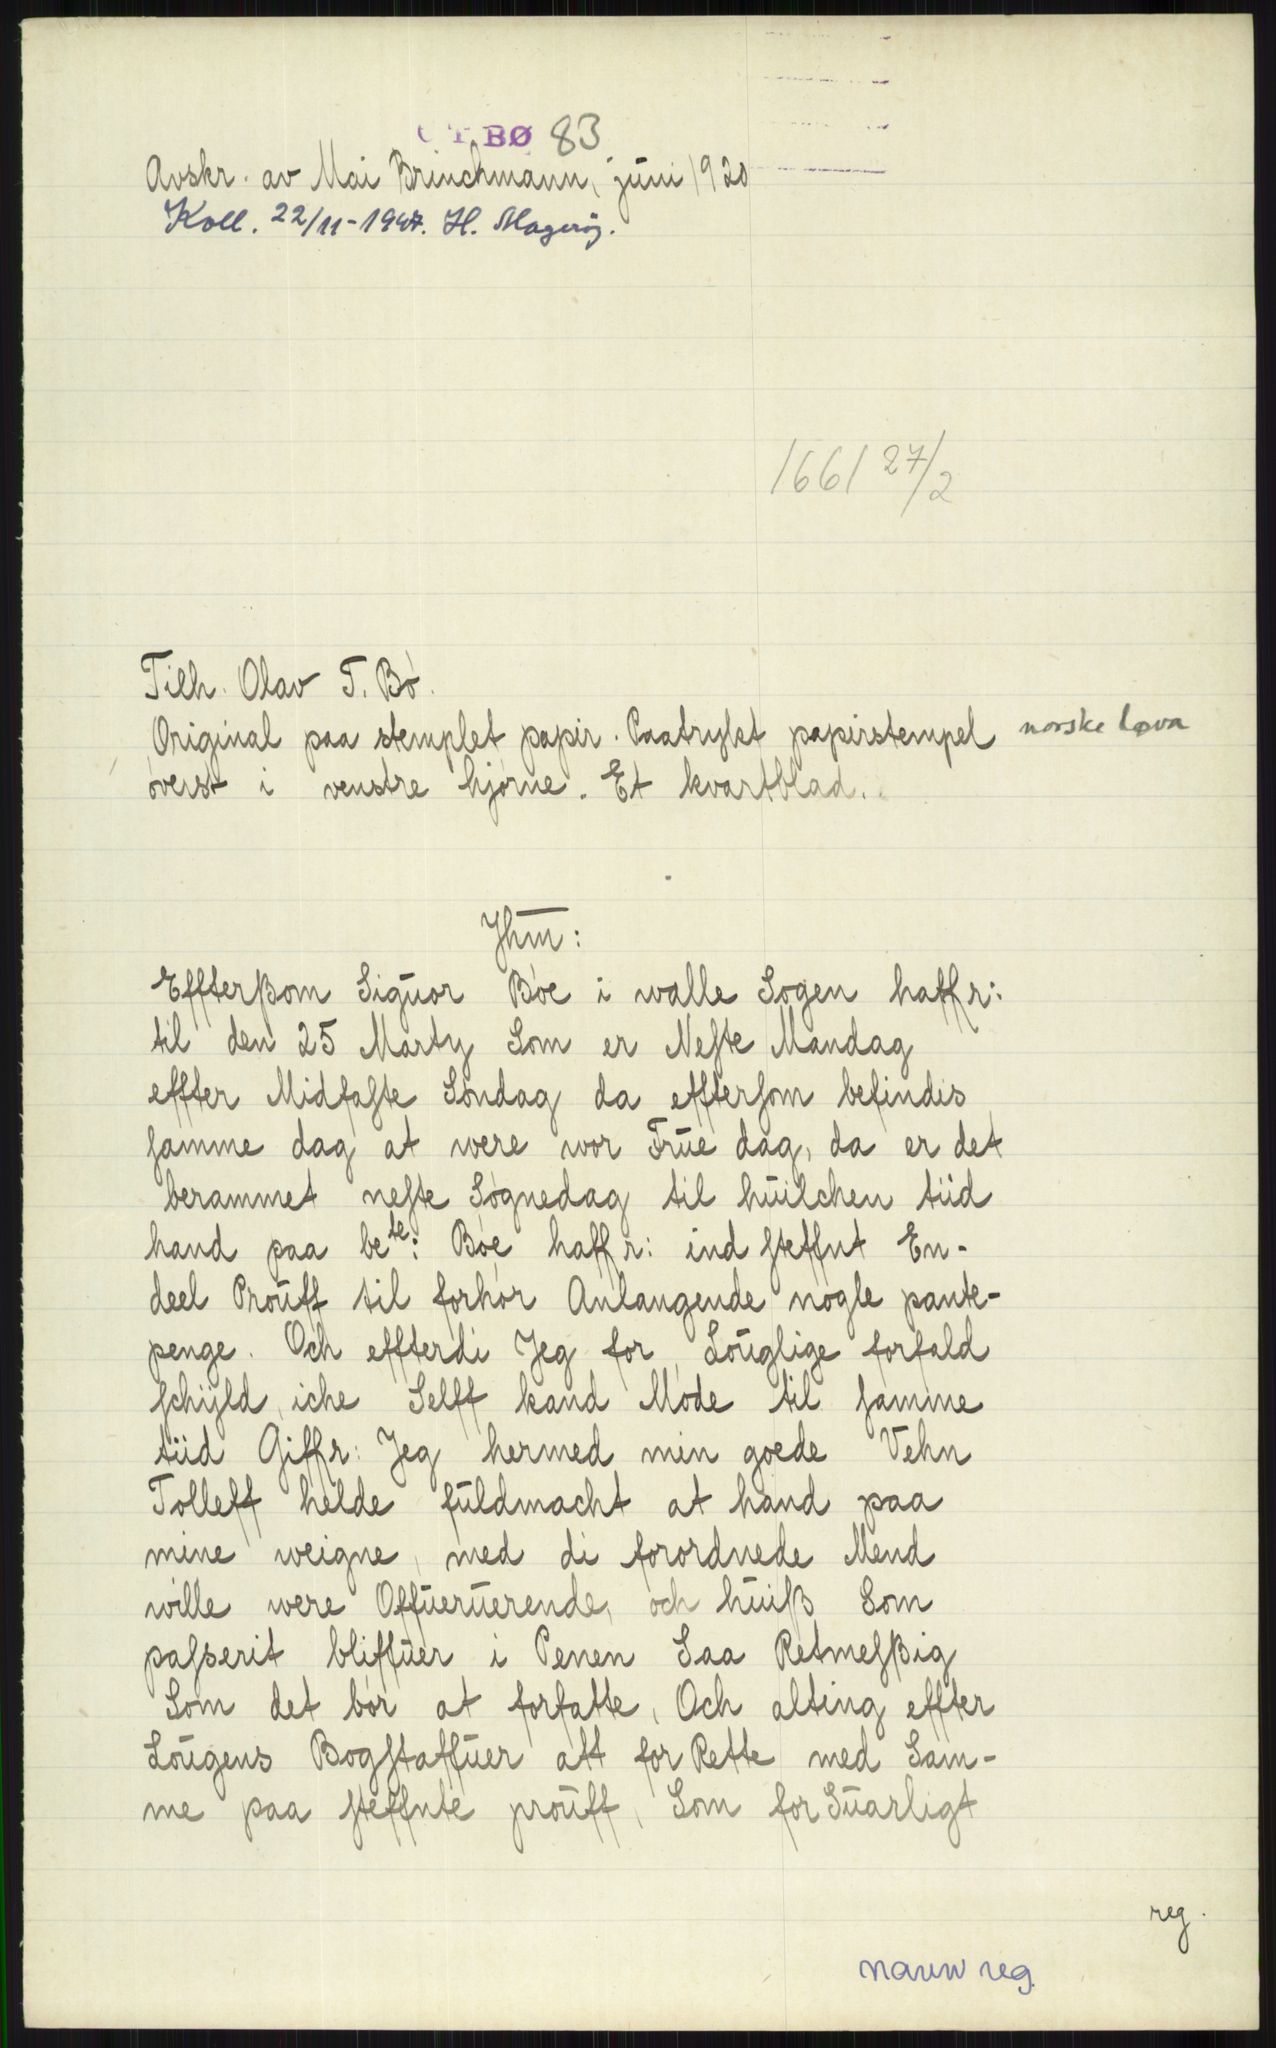 OTBØ 83
Avskr. av Mai Brinchmann, juni 1920
Koll. 22/11-1947. H. Magerøy.
1661 27/2
Tilh. Olav T. Bø.
Original paa stemplet papir. Paatrykt papirstempel norske løva
øverst i venstre hjørne. Et kvartblad.
Jhm:
Effterßom Siguor Bøe i walle Sogen haffr:
til den 25 Marty Som er Neste Mandag
effter Midfaste Søndag da efftersom befindis
samme dag at were wor Frue dag, da er det
berammet neste Søgnedag til huilchen tiid
hand paa bete: Bøe haffr: ind steffnt En-
deel Prouff til forhør Anlangende nogle pante-
penge. Och effterdi Jeg for Louglige forfald
schyld iche Selff kand Møde til samme
tiid Giffr: Jeg hermed min goede Vehn
Tolleff helde fuldmacht at hand paa
mine weigne, med di forordnede Mend
wille were Offueruerende, och huiß Som
passerit bliffuer i Penen Saa Retmesßig
Som det bør at forfatte, Och alting effter
Lougens Bogstaffuer att for Rette med Sam-
me paa steffnte prouff, Som for Suarligt
reg.
navn reg.